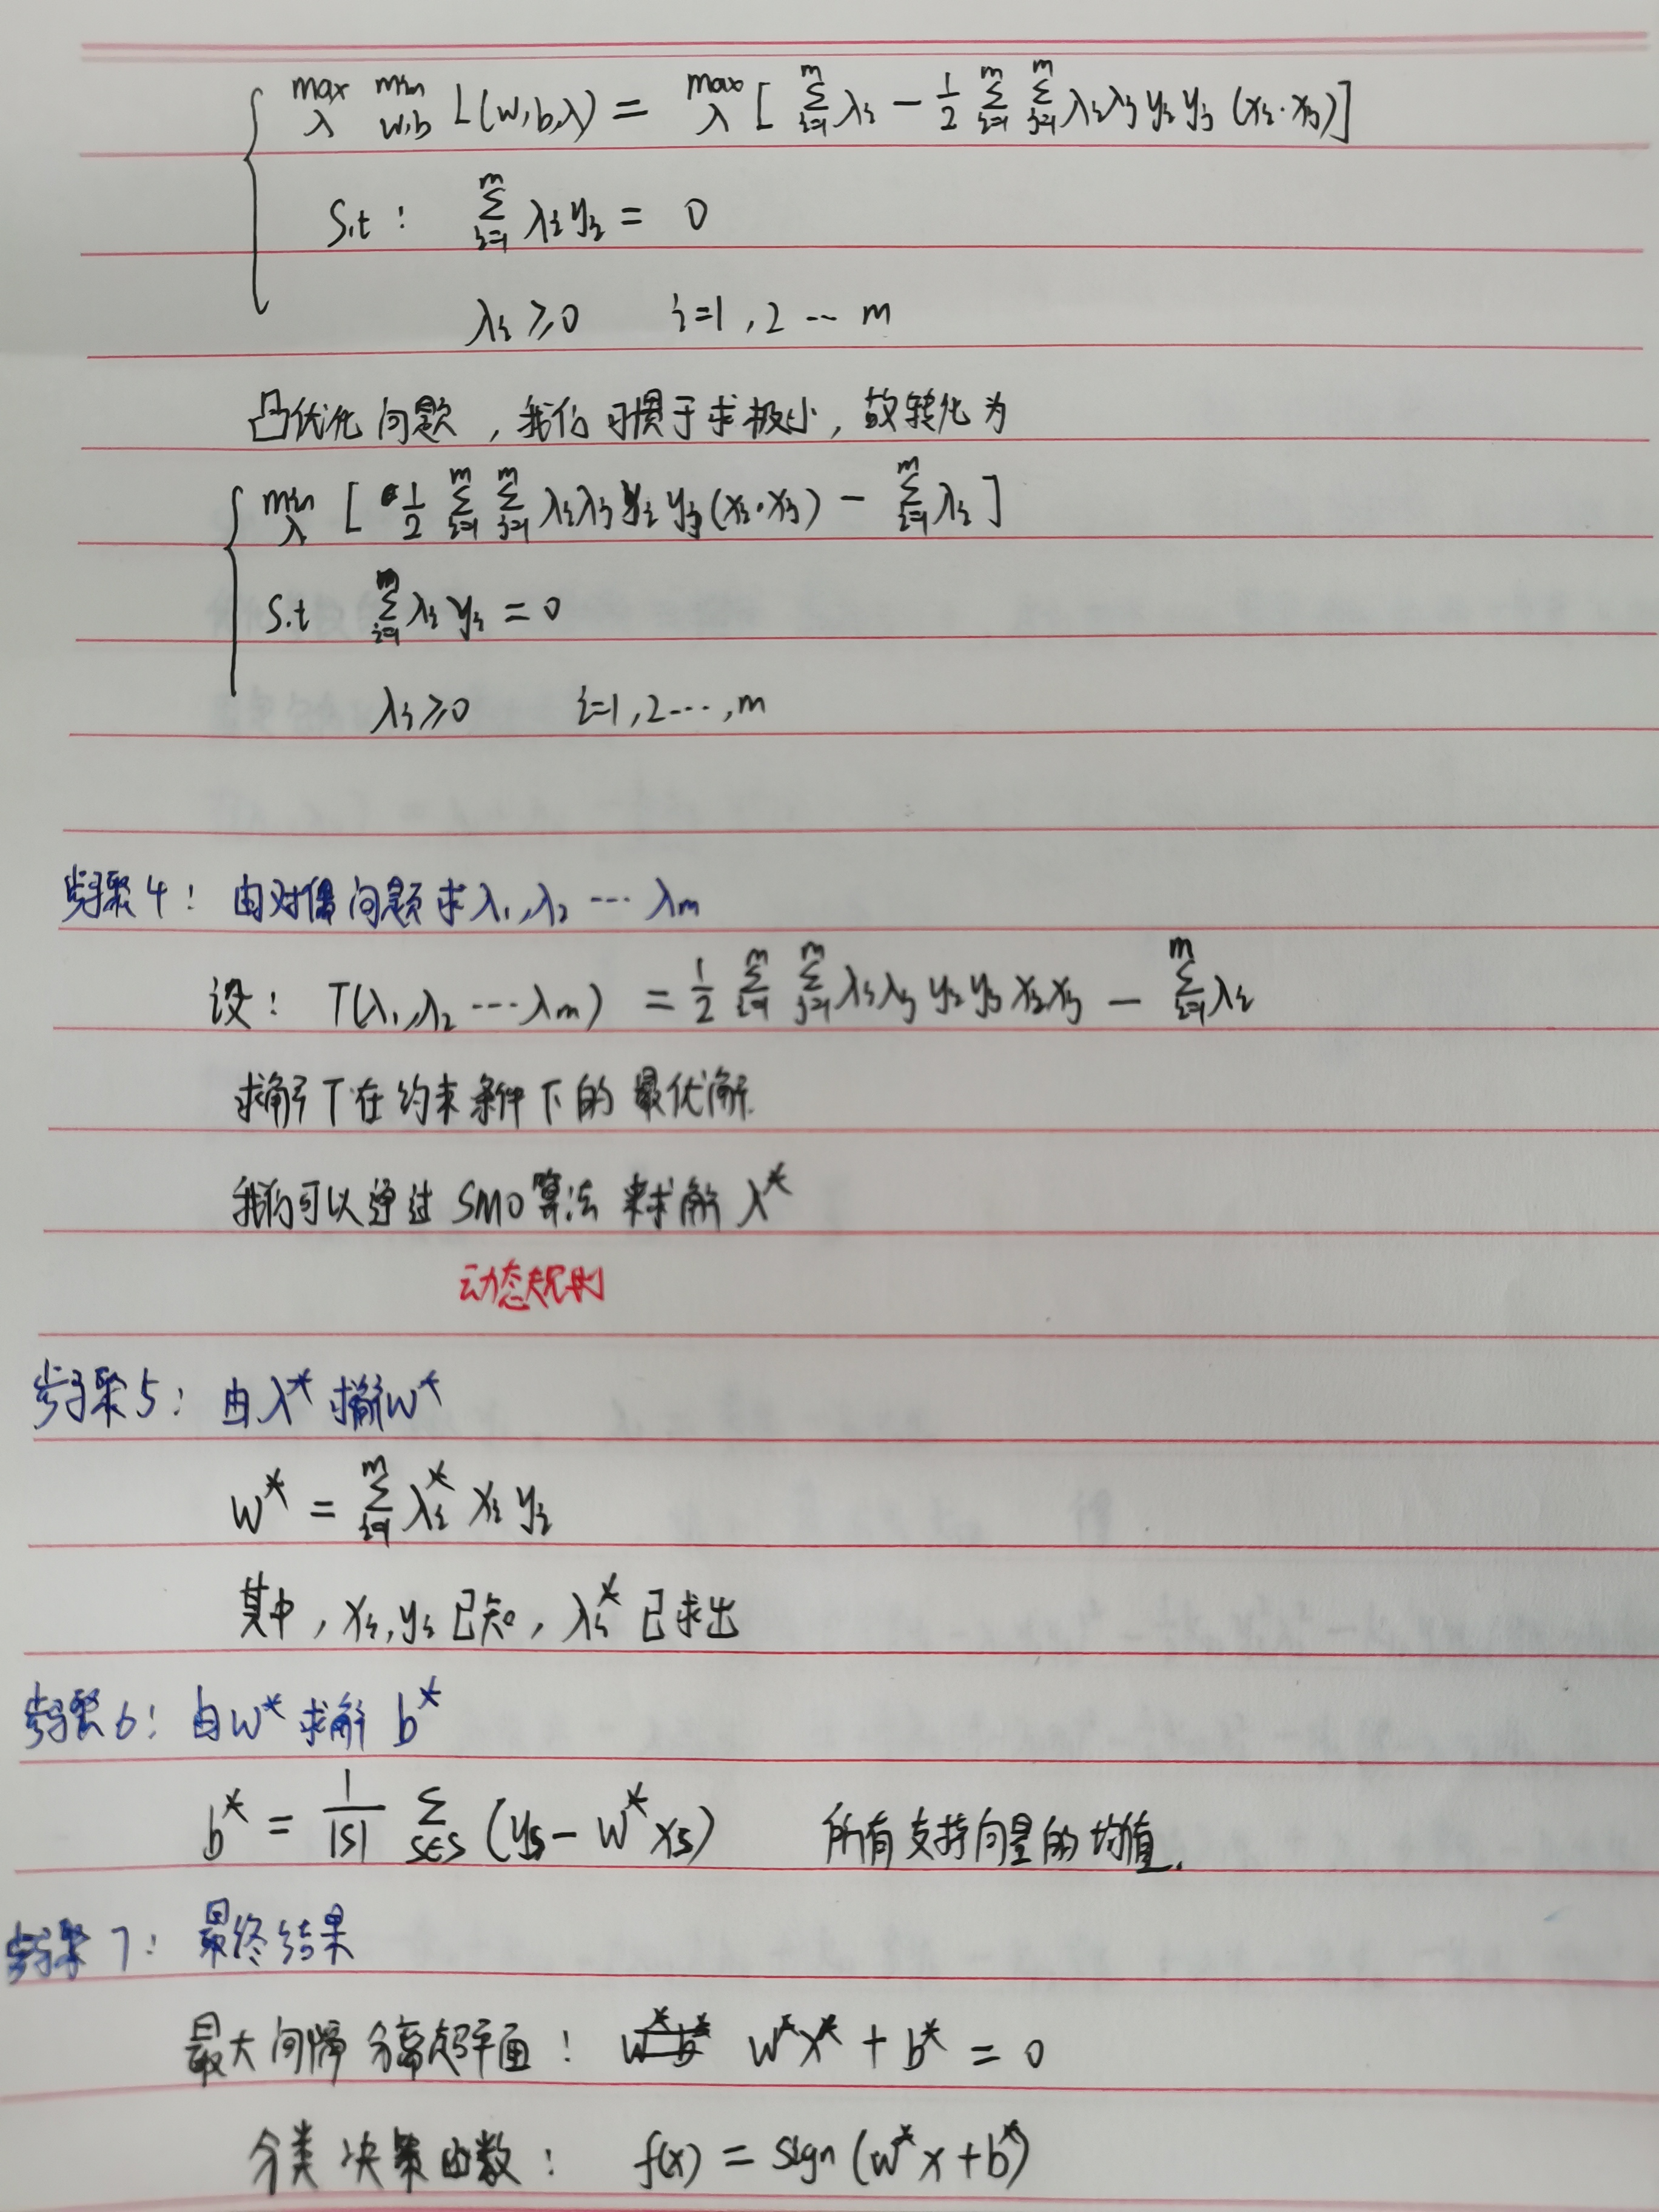 max min L(w,b,λ) = max [ Σ λi − 1/2 Σ Σ λiλj yi yj (xi·xj) ]
λ w,b λ i=1 m i=1 m j=1 m
S.t : Σ λi yi = 0
λi ≥ 0 i=1,2 … m
凸优化问题，我们习惯于求极小，故转化为
min λ [ 1/2 Σ Σ λiλj yi yj (xi·xj) − Σ λi ]
S.t Σ λi yi = 0
λi ≥ 0 i=1,2…,m
步骤4：由对偶问题求λ1,λ2 … λm
设：T(λ1,λ2 … λm) = 1/2 Σ Σ λiλj yi yj xi xj − Σ λi
求解T在约束条件下的最优解.
我们可以通过SMO算法来求解λ*
动态规则
步骤5：由λ*求解w*
w* = Σ λi* xi yi
其中，xi,yi已知，λi*已求出
步骤6：由w*求解b*
b* = 1/|S| Σ s∈S (ys − w* xs) 所有支持向量的均值.
步骤7：最终结果
最大间隔分离超平面： w*x* + b* = 0
分类决策函数： f(x) = sign (w*x+b*)